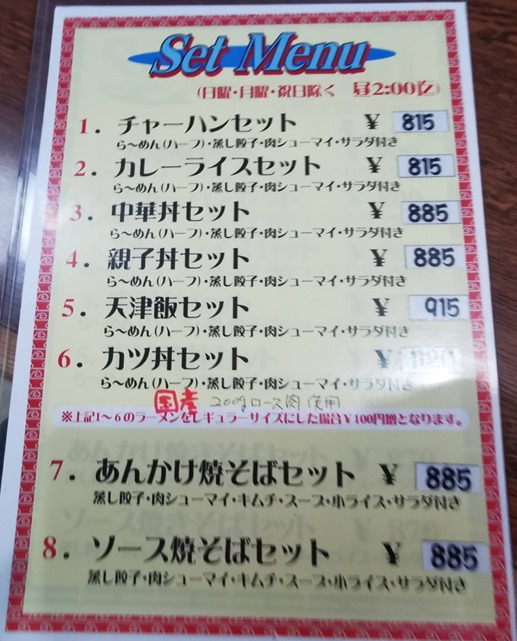 Set Menu
(日曜・月曜・祝日除く 昼2:00迄)
1. チャーハンセット ¥ 815
ら〜めん(ハーフ)・蒸し餃子・肉シューマイ・サラダ付き
2. カレーライスセット ¥ 815
ら〜めん(ハーフ)・蒸し餃子・肉シューマイ・サラダ付き
3. 中華丼セット ¥ 885
ら〜めん(ハーフ)・蒸し餃子・肉シューマイ・サラダ付き
4. 親子丼セット ¥ 885
ら〜めん(ハーフ)・蒸し餃子・肉シューマイ・サラダ付き
5. 天津飯セット ¥ 915
ら〜めん(ハーフ)・蒸し餃子・肉シューマイ・サラダ付き
6. カツ丼セット ¥
ら〜めん(ハーフ)・蒸し餃子・肉シューマイ・サラダ付き
国産 200gロース肉使用
※上記1〜6のラーメンをレギュラーサイズにした場合¥100円増となります。
7. あんかけ焼そばセット ¥ 885
蒸し餃子・肉シューマイ・キムチ・スープ・小ライス・サラダ付き
8. ソース焼そばセット ¥ 885
蒸し餃子・肉シューマイ・キムチ・スープ・小ライス・サラダ付き